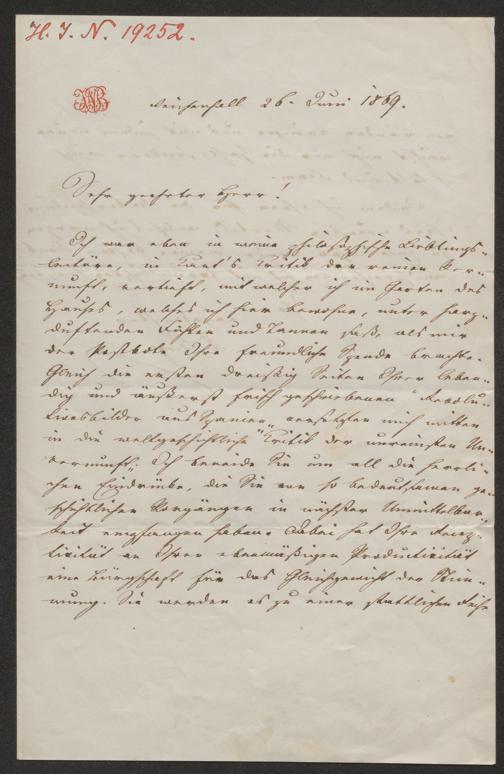 H. I. N. 19252.
Reichenhall 26. Juni 1869.
Sehr geehrter Herr!
Ich war eben in meine philosophische Lieblings-
lectüre, in Kant's Kritik der reinen Ver-
nunft, vertieft, mit welcher ich im Garten des
Hauses, welches ich hier bewohne, unter harz-
duftenden Fichten und Tannen saß, als mir
der Postbote Ihre freundliche Spende brachte.
Gleich die ersten dreißig Seiten Ihrer leben-
dig und äußerst frisch geschriebenen "Revolu-
tionsbilder aus Spanien" versetzten mich mitten
in die weltgeschichtliche "Kritik der unreinsten Un-
vernunft". Ich beneide Sie um all die herrli-
chen Eindrücke, die Sie von so bedeutsamen ge-
schichtlichen Vorgängen in nächster Unmittelbar-
keit empfangen haben. Dabei hat Ihre Recep-
tivität an Ihrer ebenmäßigen Productivität
eine Bürgschaft für das Gleichgewicht der Stim-
mung. Sie werden es zu einer stattlichen Reihe